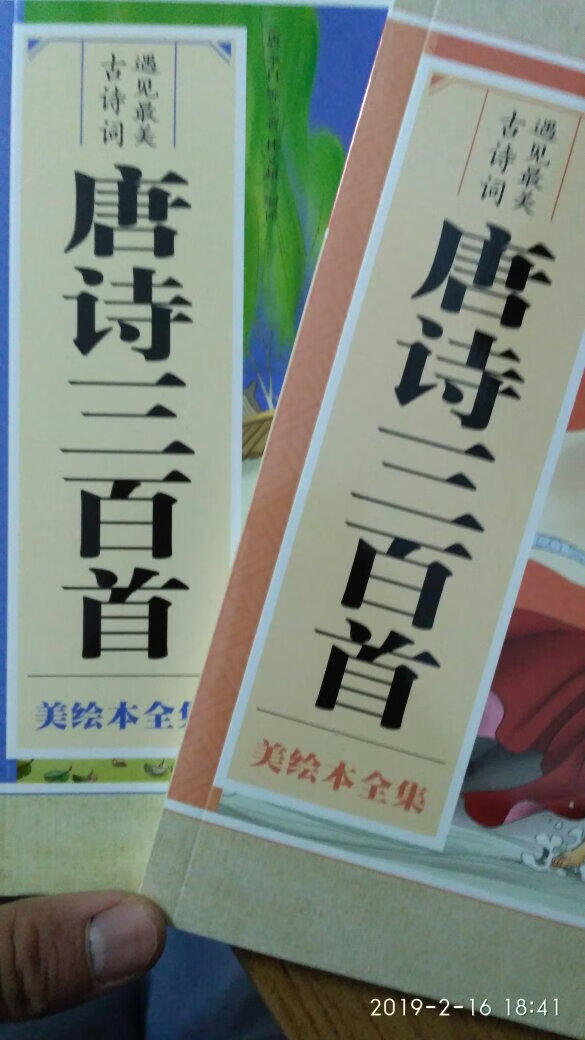 遇见最美
古诗词
唐诗三百首
美绘本全集
遇见最美
古诗词
唐诗三百首
美绘本全集
2019-2-16 18:41